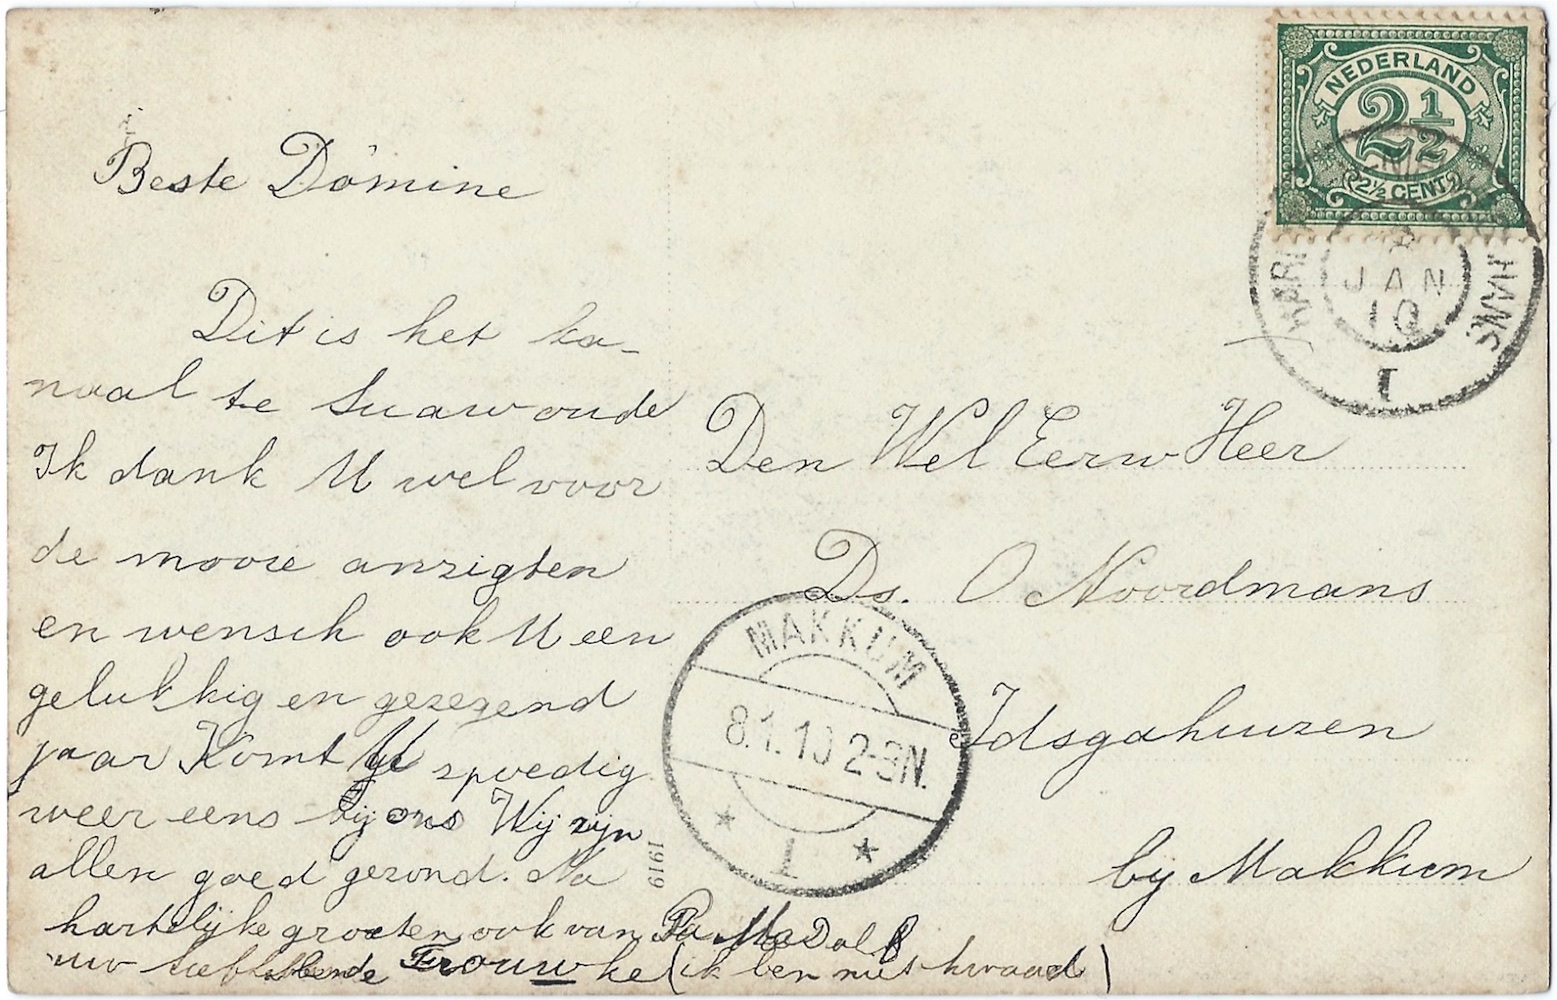 Beste Dómine
Dit is het ka-
naal te Suawoude
Ik dank U wel voor
de mooie anzigten
en wensch ook U een
gelukkig en gezegend
jaar Komt U spoedig
weer eens bij ons Wij zijn
allen goed gezond. Na
hartelijke groeten ook van Pa Ma Dolf
uw liefhebbende Trouwke (ik ben niet kwaad)
1919
NEDERLAND
2 1/2
2½ CENT
JAN
10
I
Den Wel Eerw Heer
Ds. O Noordmans
Idsgahuizen
bij Makkum
MAKKUM
8.1.10 2-3N.
I